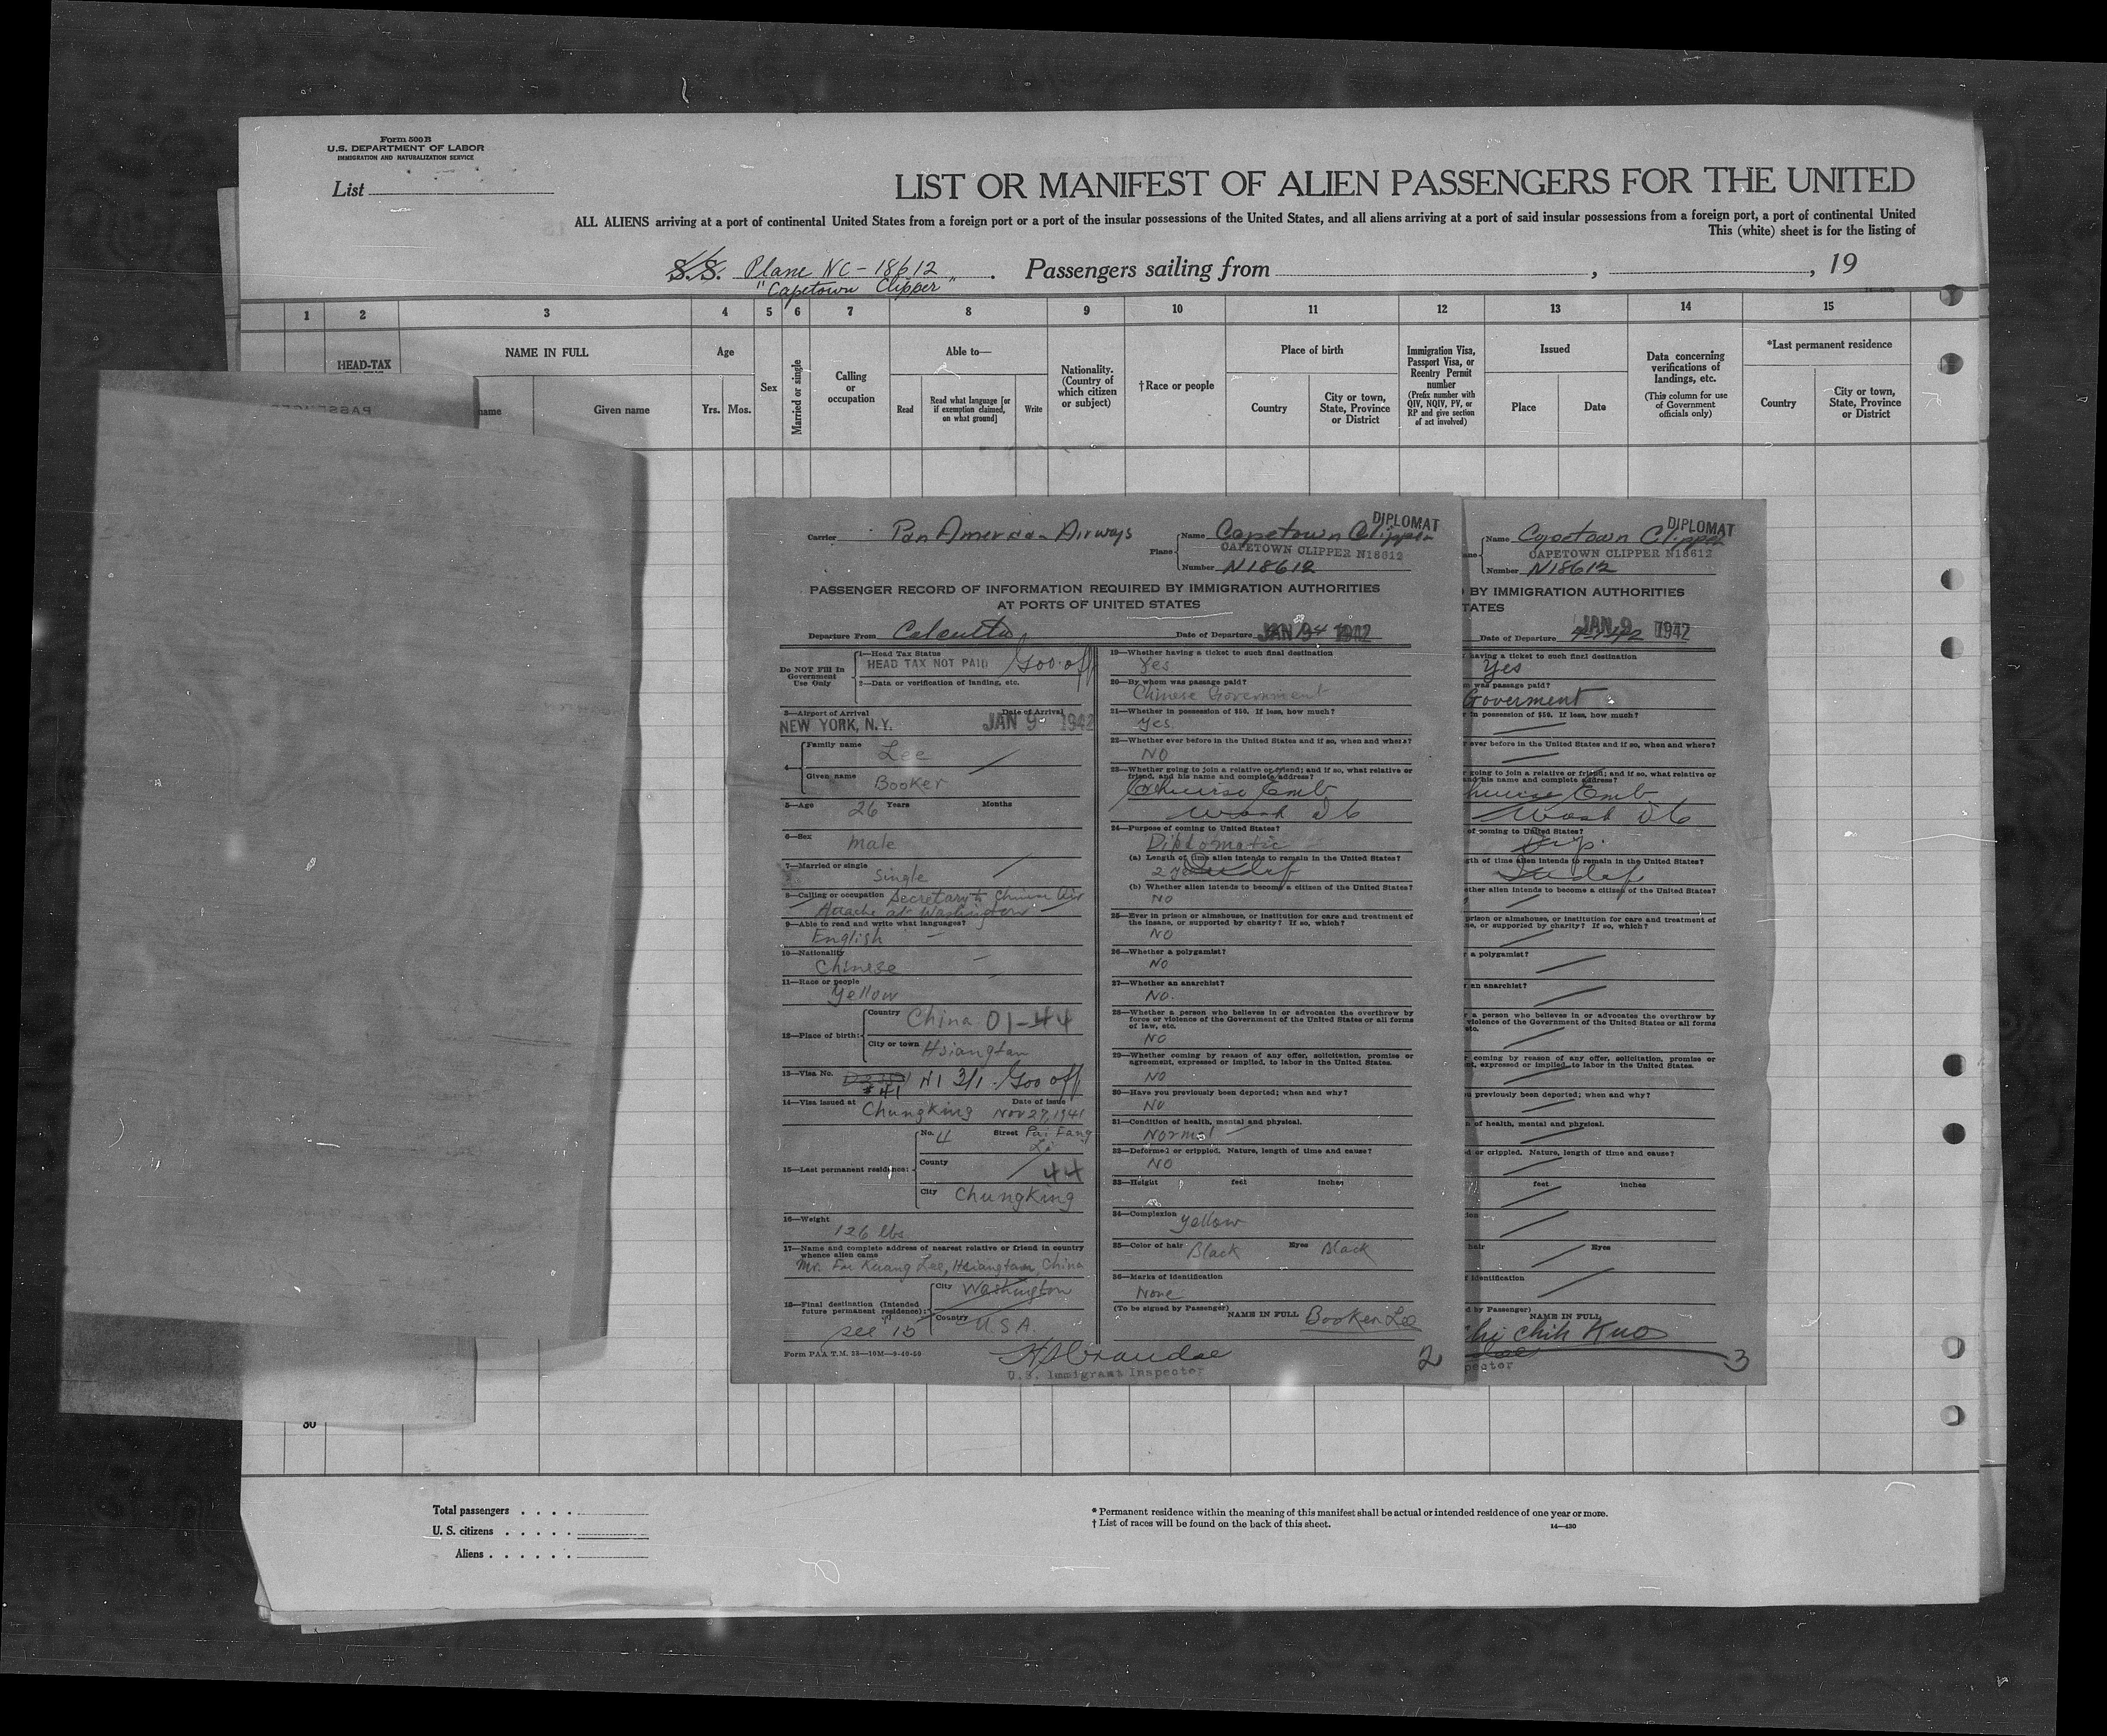 Form 500 B
U.S. DEPARTMENT OF LABOR
IMMIGRATION AND NATURALIZATION SERVICE
List
LIST OR MANIFEST OF ALIEN PASSENGERS FOR THE UNITED
ALL ALIENS arriving at a port of continental United States from a foreign port or a port of the insular possessions of the United States, and all aliens arriving at a port of said insular possessions from a foreign port, a port of continental United
This (white) sheet is for the listing of
S.S. Plane NC-18612 . Passengers sailing from , , 19
"Capetown Clipper"
1 2 3 4 5 6 7 8 9 10 11 12 13 14 15
HEAD-TAX
NAME IN FULL
Given name
Age
Yrs. Mos.
Sex
Married or single
Calling or occupation
Able to—
Read
Read what language [or if exemption claimed, on what ground]
Write
Nationality. (Country of which citizen or subject)
†Race or people
Place of birth
Country
City or town, State, Province or District
Immigration Visa, Passport Visa, or Reentry Permit number
(Prefix number with QIV, NQIV, PV, or RP and give section of act involved)
Issued
Place
Date
Data concerning verifications of landings, etc.
(This column for use of Government officials only)
*Last permanent residence
Country
City or town, State, Province or District
DIPLOMAT
Carrier Pan American Airways
Plane Name Capetown Clipper
CAPETOWN CLIPPER N18612
Number N18612
PASSENGER RECORD OF INFORMATION REQUIRED BY IMMIGRATION AUTHORITIES
AT PORTS OF UNITED STATES
Departure From Calcutta Date of Departure JAN 9 1942
Do NOT Fill In Government Use Only
1—Head Tax Status
HEAD TAX NOT PAID
2—Data or verification of landing, etc.
3—Airport of Arrival Date of Arrival
NEW YORK, N.Y. JAN 9- 1942
4— Family name Lee
Given name Booker
5—Age 26 Years Months
6—Sex
male
7—Married or single
Single
8—Calling or occupation Secretary to Chinese Air
Attache at Washington
9—Able to read and write what languages?
English
10—Nationality
Chinese
11—Race or people
Yellow
12—Place of birth: Country China 01-44
City or town Hsiangtan
13—Visa No. #41
14—Visa issued at Chungking Date of issue Nov 27, 1941
15—Last permanent residence: No. 4 Street Pai Fang Li
County 44
City Chungking
16—Weight
126 lbs.
17—Name and complete address of nearest relative or friend in country whence alien came
Mr. Fu Kuang Lee, Hsiangtan, China
18—Final destination (Intended future permanent residence): City Washington
Country U.S.A.
Form PAA T.M. 23—10M—9-40-50
19—Whether having a ticket to such final destination
Yes
20—By whom was passage paid?
Chinese Government
21—Whether in possession of $50. If less, how much?
Yes.
22—Whether ever before in the United States and if so, when and where?
NO
23—Whether going to join a relative or friend; and if so, what relative or friend, and his name and complete address?
Chinese Emb
Wash DC
24—Purpose of coming to United States?
Diplomatic
(a) Length of time alien intends to remain in the United States?
Indef
(b) Whether alien intends to become a citizen of the United States?
NO
25—Ever in prison or almshouse, or institution for care and treatment of the insane, or supported by charity? If so, which?
NO
26—Whether a polygamist?
NO
27—Whether an anarchist?
NO.
28—Whether a person who believes in or advocates the overthrow by force or violence of the Government of the United States or all forms of law, etc.
NO
29—Whether coming by reason of any offer, solicitation, promise or agreement, expressed or implied, to labor in the United States.
NO
30—Have you previously been deported; when and why?
NO
31—Condition of health, mental and physical.
Normal
32—Deformed or crippled. Nature, length of time and cause?
NO
33—Height feet inches
34—Complexion
Yellow
35—Color of hair Black Eyes Black
36—Marks of identification
None
(To be signed by Passenger) NAME IN FULL Booker Lee
U.S. Immigrant Inspector
2
DIPLOMAT
Name Capetown Clipper
CAPETOWN CLIPPER N18612
Number N18612
BY IMMIGRATION AUTHORITIES
TATES
Date of Departure JAN 9 1942
having a ticket to such final destination
Yes
was passage paid?
Goverment
in possession of $50. If less, how much?
ever before in the United States and if so, when and where?
going to join a relative or friend; and if so, what relative or
and his name and complete address?
Emb
Wash DC
of coming to United States?
Dip.
gth of time alien intends to remain in the United States?
Indef
ether alien intends to become a citizen of the United States?
prison or almshouse, or institution for care and treatment of
e, or supported by charity? If so, which?
a polygamist?
an anarchist?
a person who believes in or advocates the overthrow by
violence of the Government of the United States or all forms
etc.
coming by reason of any offer, solicitation, promise or
nt, expressed or implied, to labor in the United States.
u previously been deported; when and why?
n of health, mental and physical.
d or crippled. Nature, length of time and cause?
feet inches
ion
hair Eyes
f identification
d by Passenger)
NAME IN FULL
hi Chih Kuo
pector
3
30
Total passengers . . . .
U. S. citizens . . . . .
Aliens . . . . . .
* Permanent residence within the meaning of this manifest shall be actual or intended residence of one year or more.
† List of races will be found on the back of this sheet.
14—430